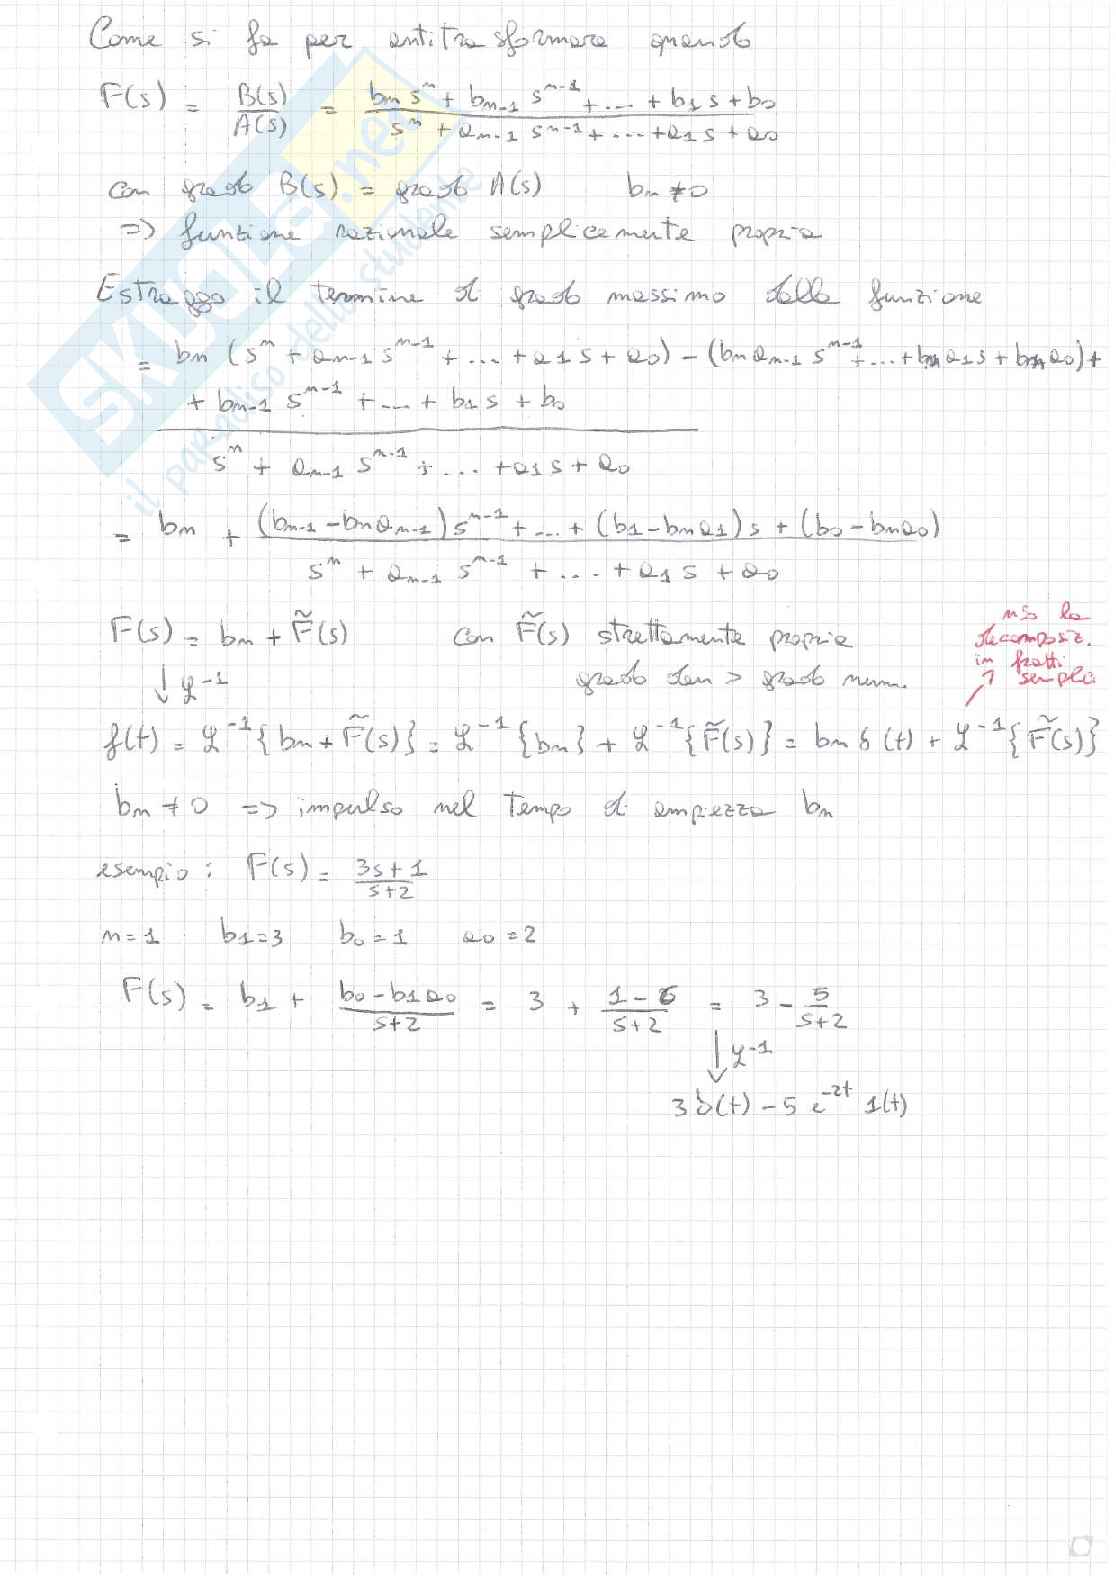 Come si fa per antitrasformare quando
F(s) = B(s)/A(s) = (bn s^n + bn-1 s^n-1 + ... + b1 s + b0)/(s^n + an-1 s^n-1 + ... + a1 s + a0)
con grado B(s) = grado A(s) bn ≠ 0
=> funzione razionale semplicemente propria
Estraggo il termine di grado massimo della funzione
= bn (s^n + an-1 s^n-1 + ... + a1 s + a0) - (bn an-1 s^n-1 + ... + bn a1 s + bn a0) +
+ bn-1 s^n-1 + ... + b1 s + b0
s^n + an-1 s^n-1 + ... + a1 s + a0
= bn + ((bn-1 - bn an-1) s^n-1 + ... + (b1 - bn a1) s + (b0 - bn a0))/(s^n + an-1 s^n-1 + ... + a1 s + a0)
F(s) = bn + F̃(s) con F̃(s) strettamente propria
↓ ℒ^-1 grado den > grado num.
uso la
decomposiz.
in fratti
semplici
f(t) = ℒ^-1{bn + F̃(s)} = ℒ^-1{bn} + ℒ^-1{F̃(s)} = bn δ(t) + ℒ^-1{F̃(s)}
bn ≠ 0 => impulso nel tempo di ampiezza bn
esempio: F(s) = (3s+1)/(s+2)
n=1 b1=3 b0=1 a0=2
F(s) = b1 + (b0 - b1 a0)/(s+2) = 3 + (1-6)/(s+2) = 3 - 5/(s+2)
↓ ℒ^-1
3 δ(t) - 5 e^-2t 1(t)
SKUOLA.net
il paradiso dello studente